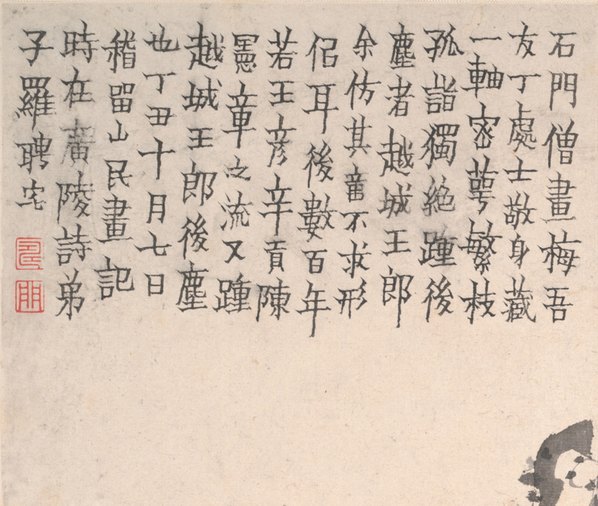 石門僧畫梅吾
友丁處士敬身藏
一軸密萼繁枝
孤詣獨絕踵後
塵者越城王郎
余仿其意不求形
侣耳後數百年
若王彥辛貢陳
憲章之流又踵
越城王郎後塵
也丁丑十月七日
稽留山民畫記
時在廣陵詩弟
子羅聘宅